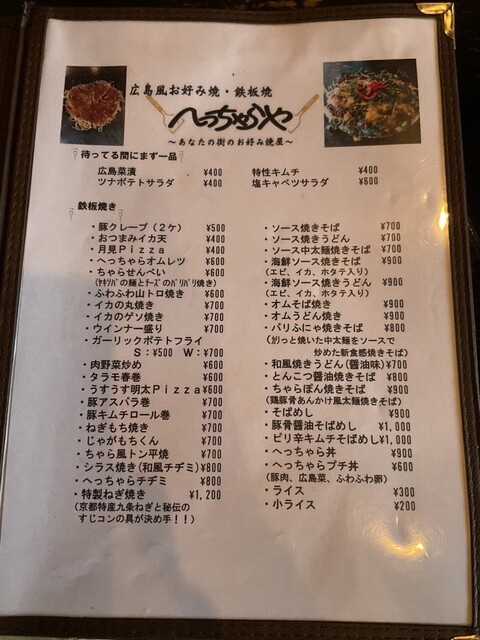 広島風お好み焼・鉄板焼
へっちゃらや
～あなたの街のお好み焼屋～
待ってる間にまず一品
広島菜漬 ¥400
ツナポテトサラダ ¥400
特性キムチ ¥400
塩キャベツサラダ ¥600
鉄板焼き
・豚クレープ(2ケ) ¥500
・おつまみイカ天 ¥400
・月見Pizza ¥400
・へっちゃらオムレツ ¥600
・ちゃらせんべい ¥600
(ﾔｷｿﾊﾞの麺とﾁｰｽﾞのﾊﾟﾘﾊﾟﾘ焼き)
・ふわふわ山トロ焼き ¥600
・イカの丸焼き ¥700
・イカのゲソ焼き ¥700
・ウインナー盛り ¥700
・ガーリックポテトフライ
S:¥500 W:¥700
・肉野菜炒め ¥600
・タラモ春巻 ¥600
・うすうす明太Pizza ¥600
・豚アスパラ巻 ¥700
・豚キムチロール巻 ¥700
・ねぎもち焼き ¥700
・じゃがもちくん ¥700
・ちゃら風トン平焼 ¥700
・シラス焼き(和風チヂミ) ¥800
・へっちゃらチヂミ ¥800
・特製ねぎ焼き ¥1,200
(京都特産九条ねぎと秘伝の
すじコンの具が決め手!!)
・ソース焼きそば ¥700
・ソース焼きうどん ¥700
・ソース中太麺焼きそば ¥700
・海鮮ソース焼きそば ¥900
(エビ、イカ、ホタテ入り)
・海鮮ソース焼きうどん ¥900
(エビ、イカ、ホタテ入り)
・オムそば焼き ¥900
・オムうどん焼き ¥900
・パリふにゃ焼きそば ¥800
(ｶﾘｯと焼いた中太麺をソースで
炒めた新食感焼きそば)
・和風焼きうどん(醤油味) ¥700
・とんこつ醤油焼きそば ¥800
・ちゃらぽん焼きそば ¥900
(鶏豚骨あんかけ風太麺焼きそば)
・そばめし ¥900
・豚骨醤油そばめし ¥1,000
・ピリ辛キムチそばめし ¥1,000
・へっちゃら丼 ¥900
・へっちゃらプチ丼 ¥600
(豚肉、広島菜、ふわふわ卵)
・ライス ¥300
・小ライス ¥200